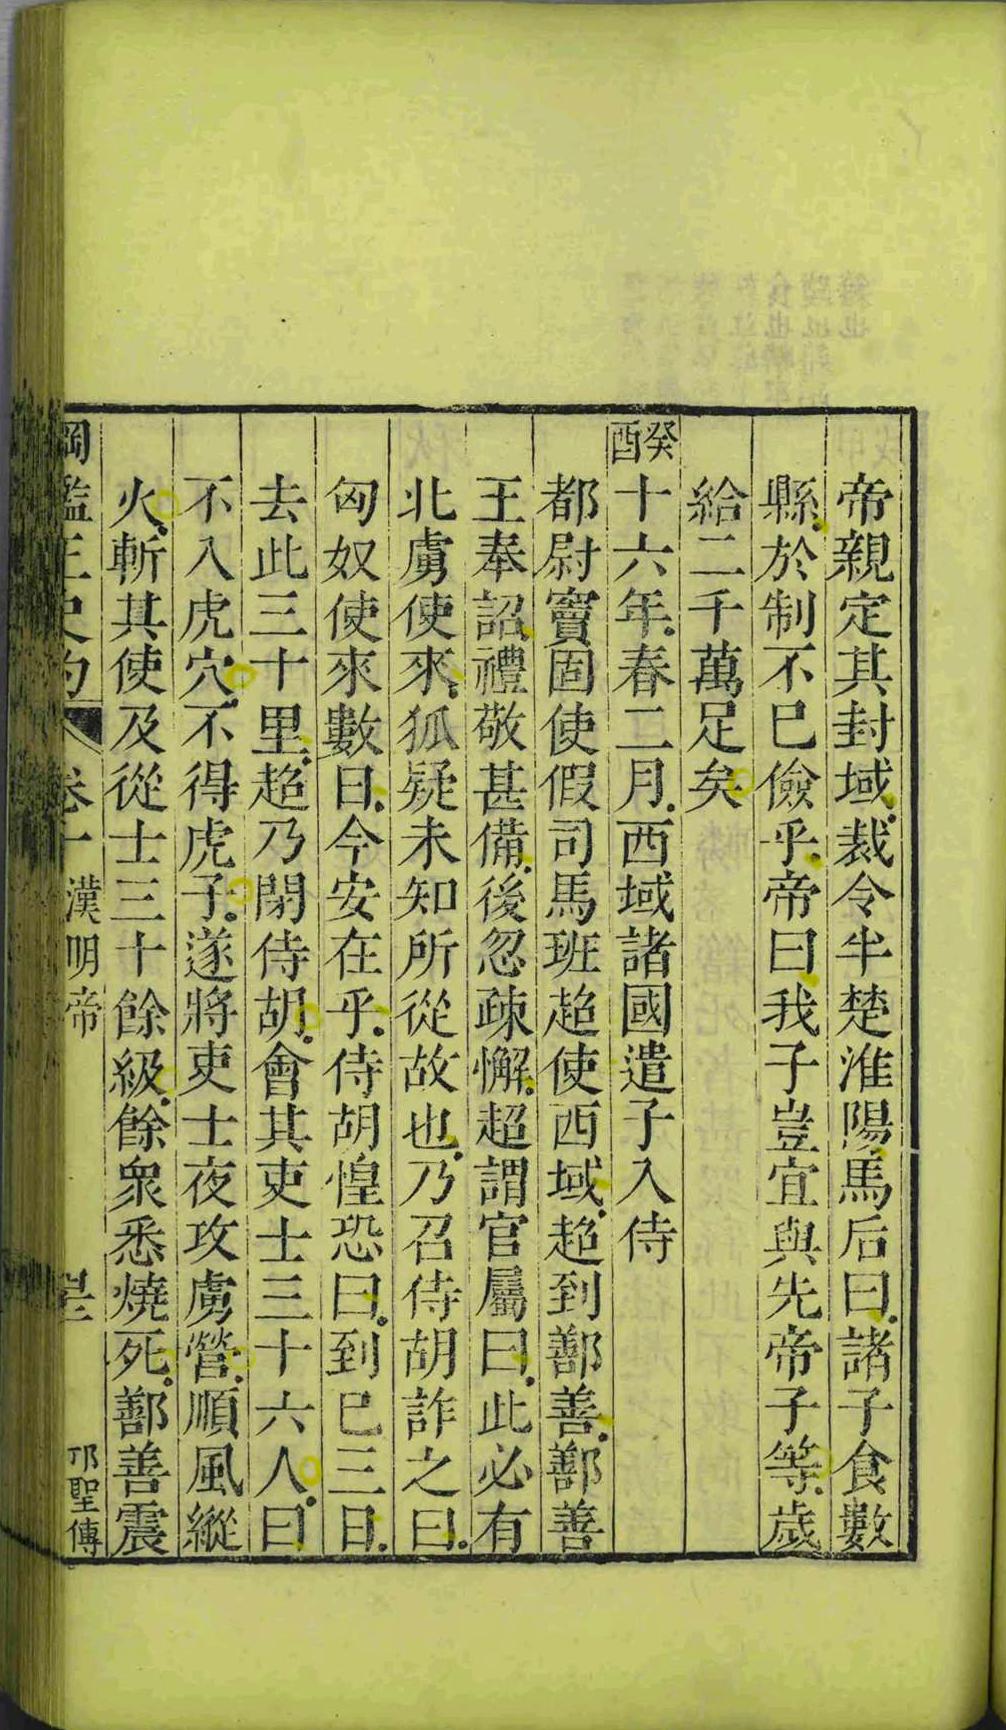 帝親定其封域裁令半楚淮陽馬后曰諸子食數
縣於制不已儉乎帝曰我子豈宜與先帝子等歲
給二千萬足矣
癸酉
十六年春二月西域諸國遣子入侍
都尉竇固使假司馬班超使西域超到鄯善鄯善
王奉詔禮敬甚備後忽疎懈超謂官屬曰此必有
北虜使來狐疑未知所從故也乃召侍胡詐之曰
匈奴使來數日今安在乎侍胡惶恐曰到已三日
去此三十里超乃閉侍胡會其吏士三十六人曰
不入虎穴不得虎子遂將吏士夜攻虜營順風縱
火斬其使及從士三十餘級餘衆悉燒死鄯善震
綱鑑正史約 卷十 漢明帝 邛聖傳